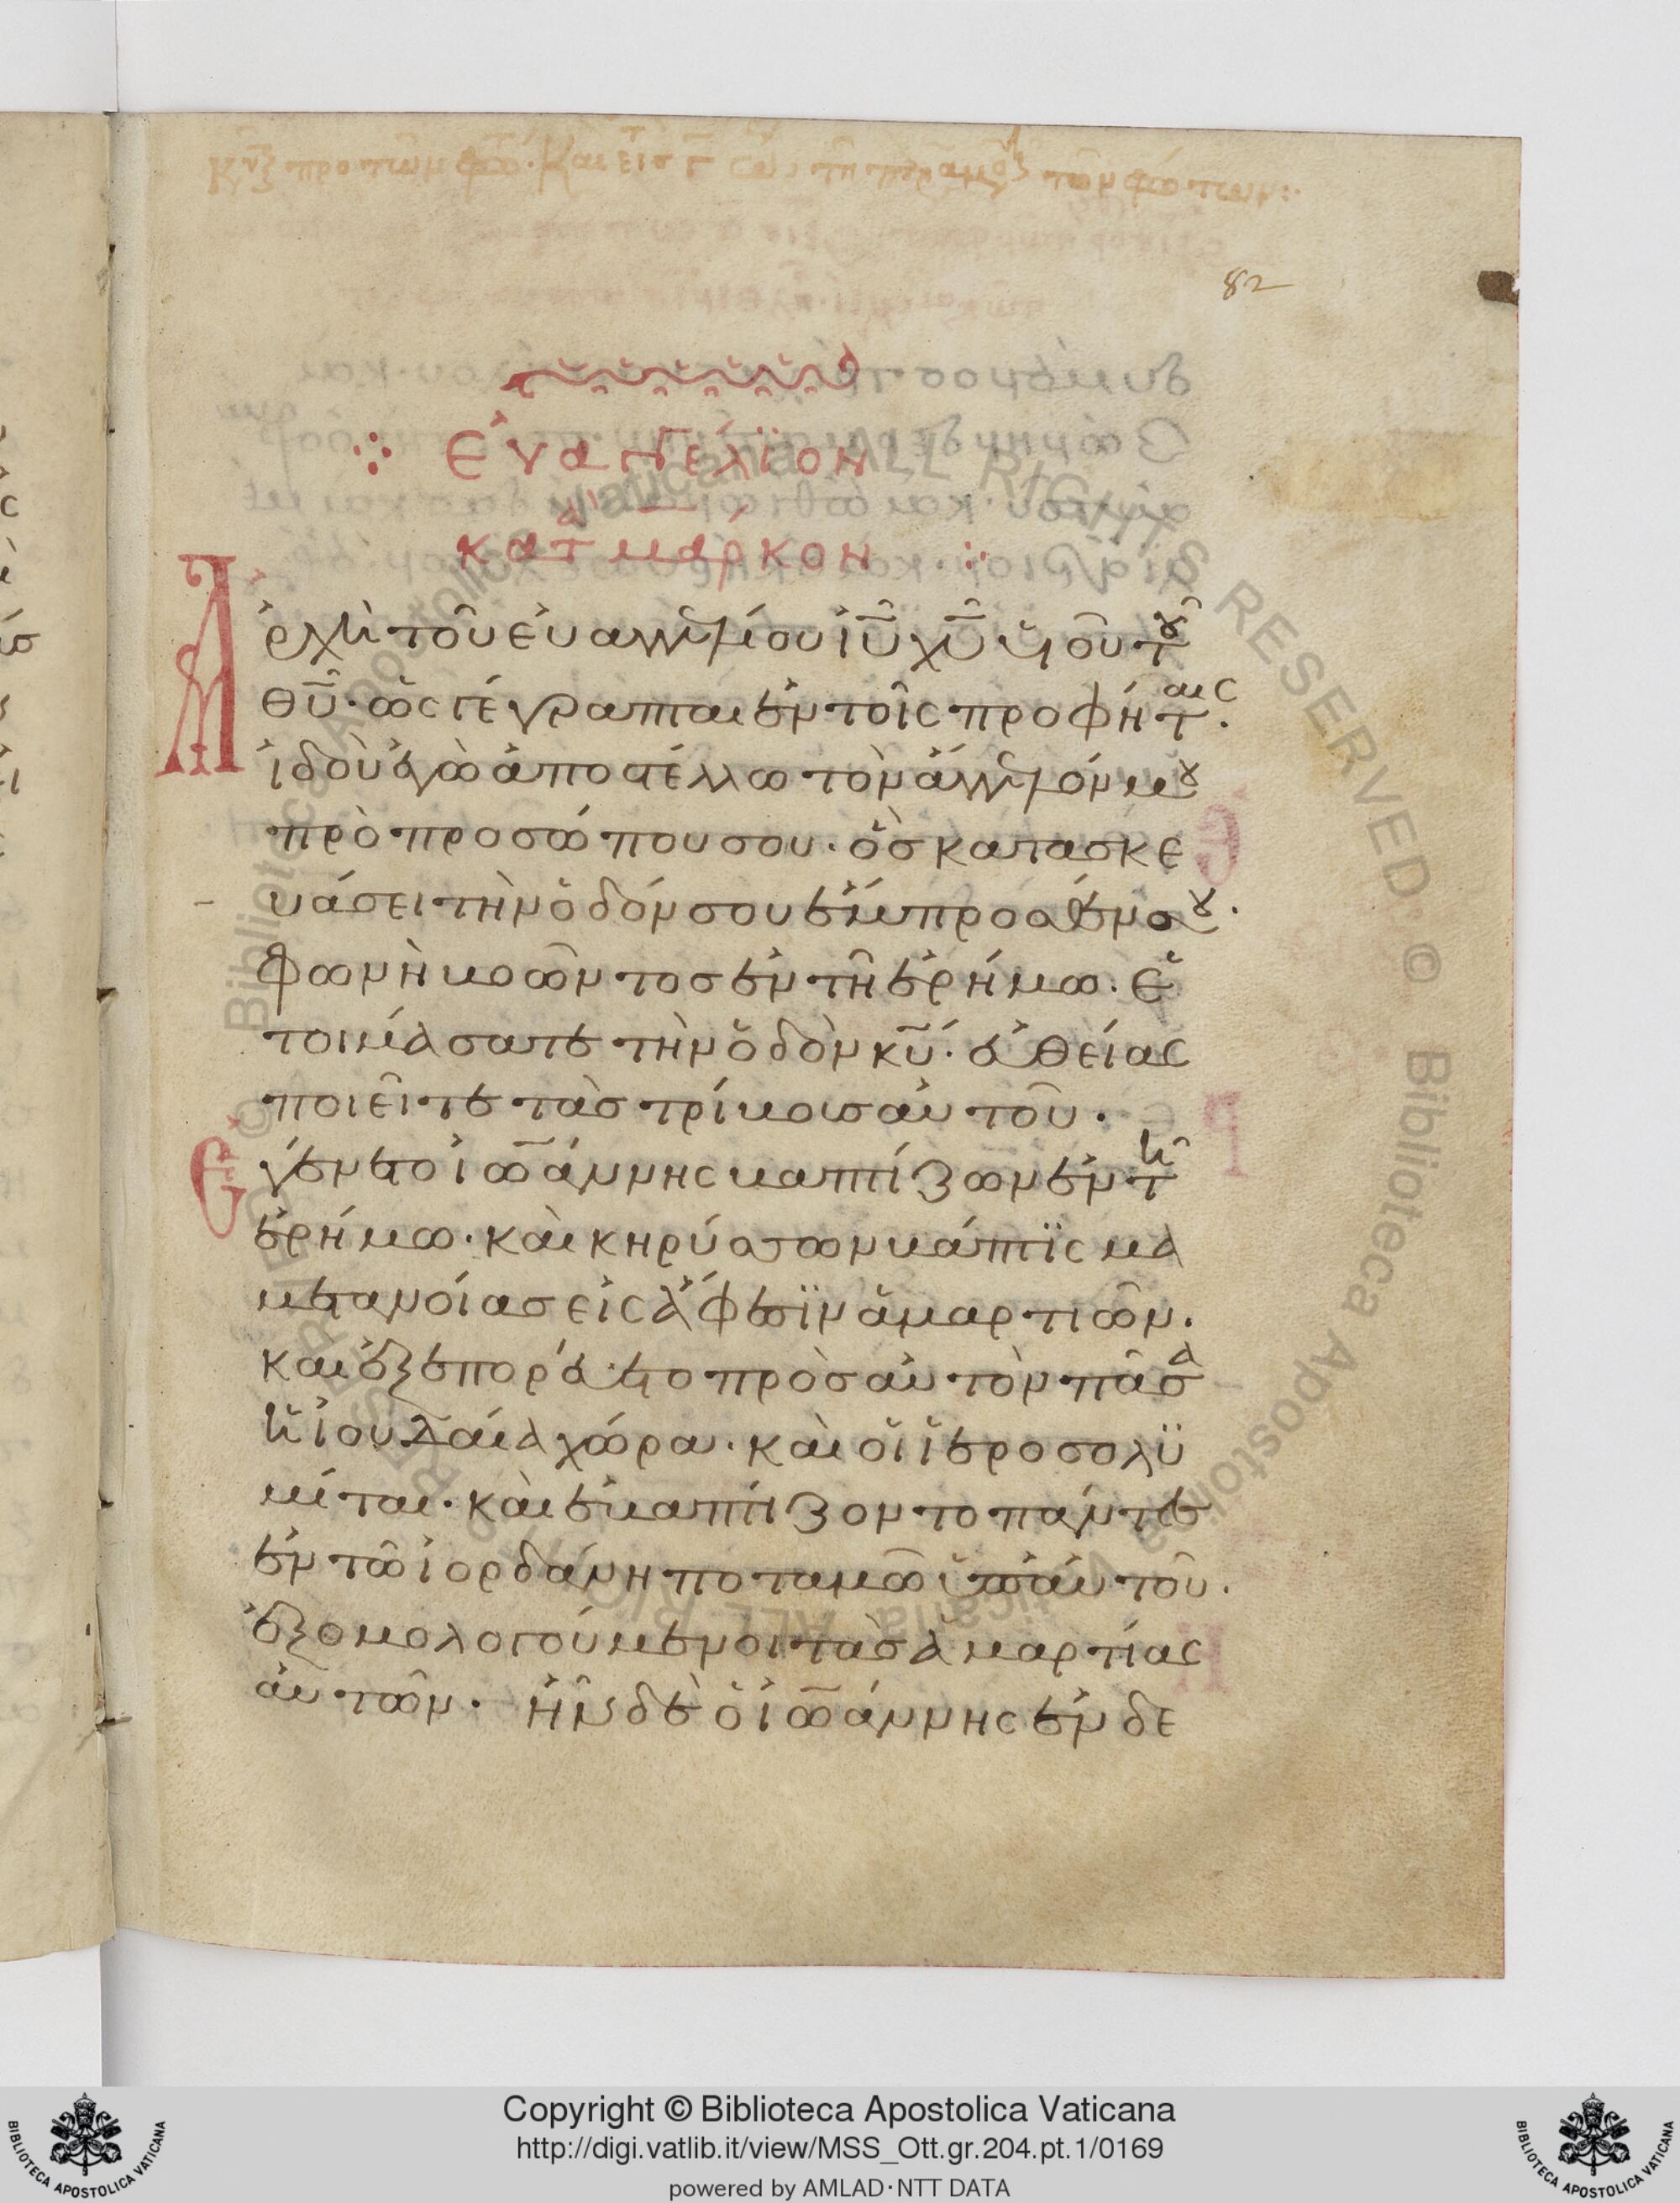 82
εὐαγγέλϊον
κατ μάρκον
Ἀρχὴ τοῦ εὐαγγελίου ἰῦ χῦ υἱοῦ τοῦ
θῦ· ὡς γέγραπται ἐν τοῖς προφήταις.
ἰδοὺ ἐγὼ ἀποστέλλω τὸν ἄγγελόν μου
πρὸ προσώπου σου· ὃς κατασκε
υάσει τὴν ὁδόν σου ἔμπροσθέν σου.
φωνὴ βοῶντος ἐν τῆ ἐρήμω· ἑ
τοιμάσατε τὴν ὁδὸν κῦ· εὐθείας
ποιεῖτε τὰς τρίβους αὐτοῦ.
Ἐγένετο ἰωάννης βαπτίζων ἐν τῆ
ἐρήμω· καὶ κηρύσσων βάπτϊσμα
μετανοίας εἰς ἄφεσϊν ἁμαρτιῶν.
καὶ ἐξεπορεύετο πρὸς αὐτὸν πᾶσα
ἡ ἰουδαία χώρα· καὶ οἱ ἱεροσολϋ
μίται· καὶ ἐβαπτίζοντο πάντες
ἐν τῶ ἰορδάνη ποταμῶ ὑπ' αὐτοῦ.
ἐξομολογούμενοι τὰς ἁμαρτίας
αὐτῶν. ἦν δὲ ὁ ἰωάννης ἐνδε
Copyright © Biblioteca Apostolica Vaticana
http://digi.vatlib.it/view/MSS_Ott.gr.204.pt.1/0169
powered by AMLAD·NTT DATA
BIBLIOTECA APOSTOLICA VATICANA
BIBLIOTECA APOSTOLICA VATICANA